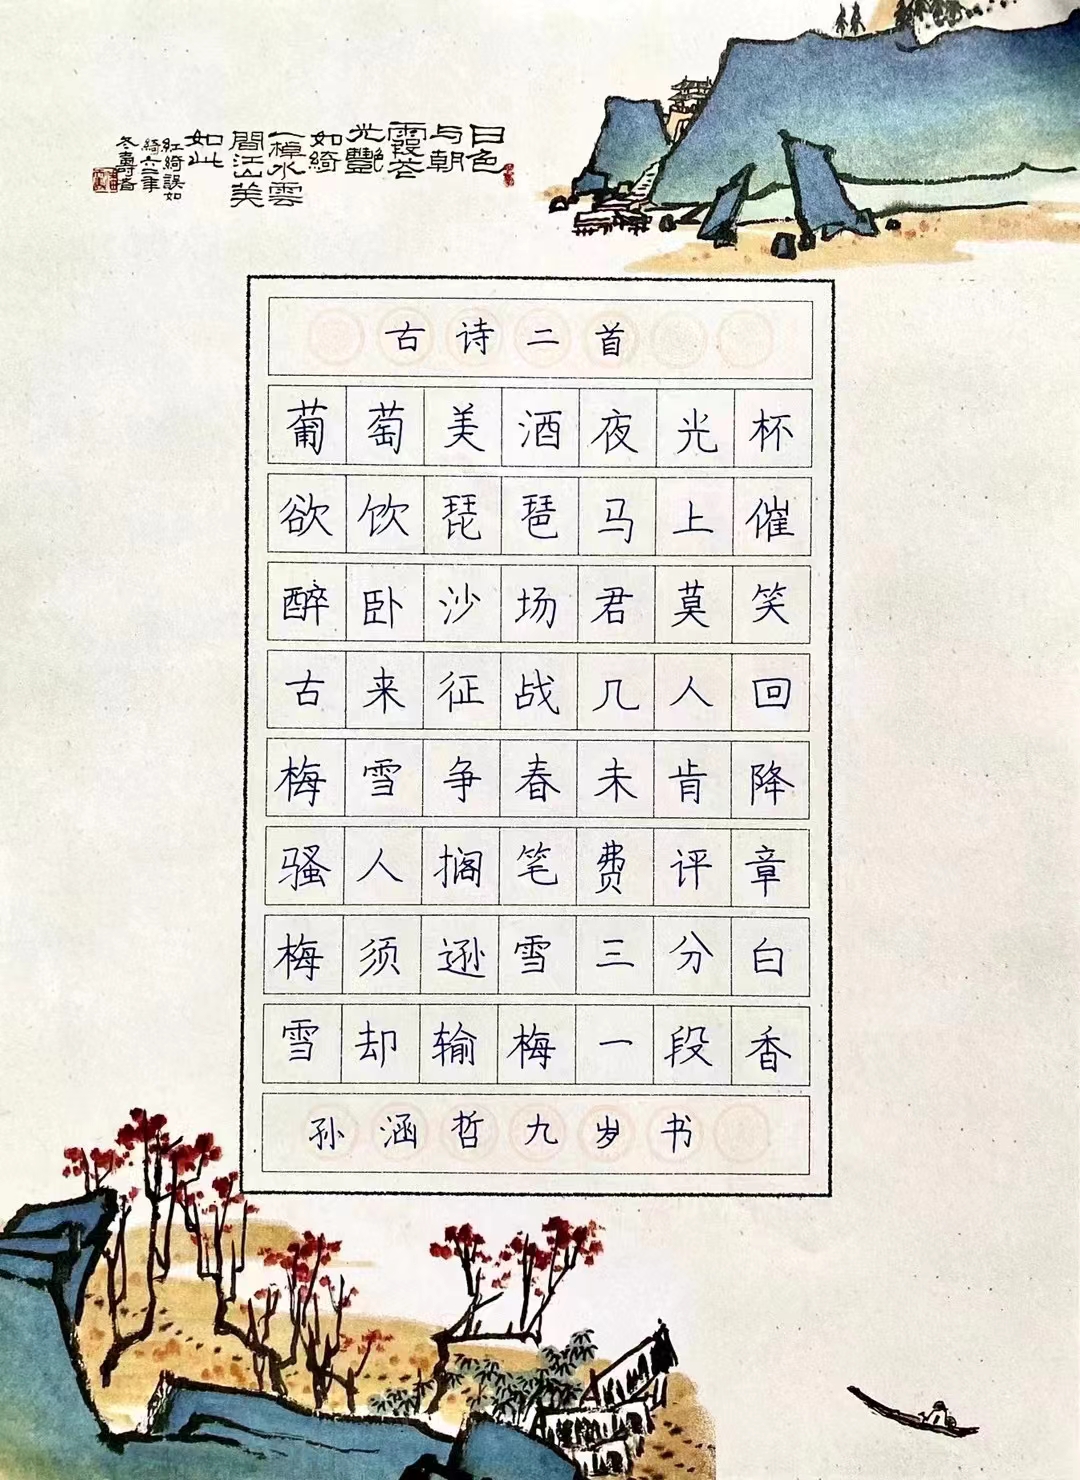 日色
与朝
霞苍
光艷
如绮
一棹水雲
間江山美
如此
红绮误如
绮六二年
冬寿春
古诗二首
葡萄美酒夜光杯
欲饮琵琶马上催
醉卧沙场君莫笑
古来征战几人回
梅雪争春未肯降
骚人搁笔费评章
梅须逊雪三分白
雪却输梅一段香
孙涵哲九岁书